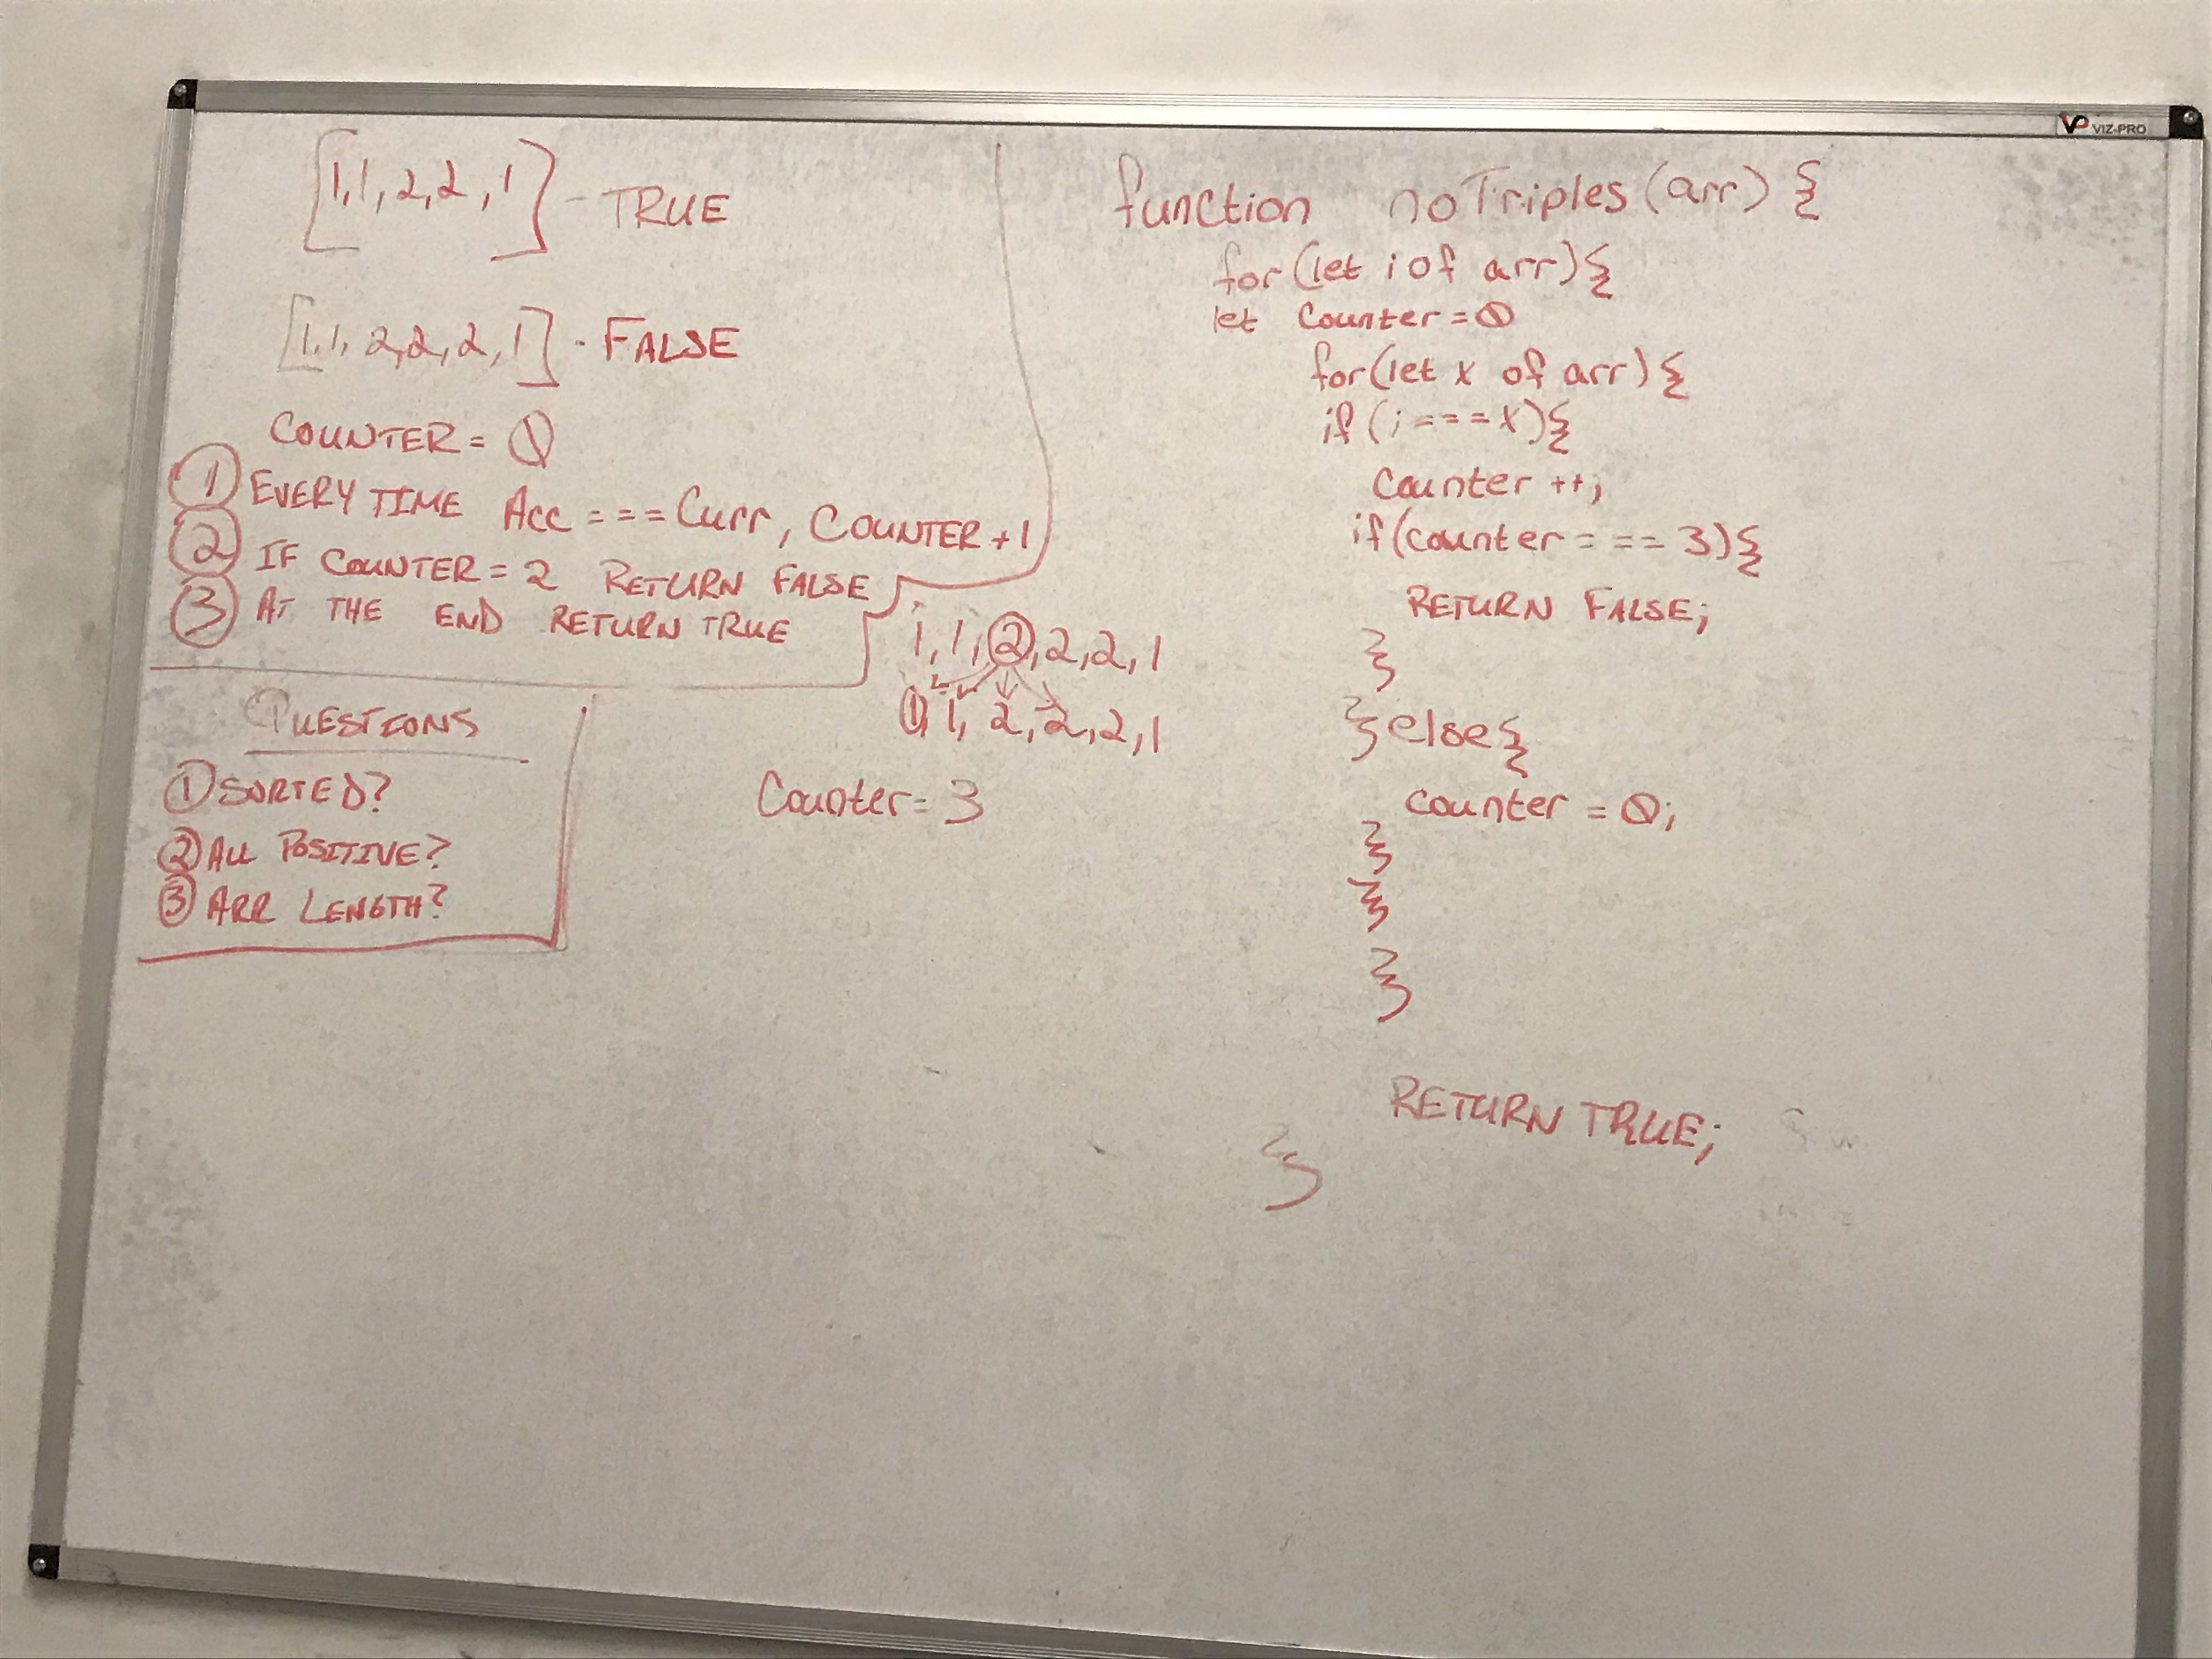 VP VIZ-PRO
[1,1,2,2,1] - TRUE
[1,1,2,2,2,1] - FALSE
COUNTER = 0
① EVERY TIME Acc === Curr, COUNTER + 1
② IF COUNTER = 2 RETURN FALSE
③ AT THE END RETURN TRUE
1,1,2,2,2,1
1,1,2,2,2,1
Counter = 3
QUESTIONS
① SORTED?
② ALL POSITIVE?
③ ARR LENGTH?
function noTriples(arr) {
for(let i of arr){
let counter = 0
for(let x of arr){
if(i===x){
Counter ++;
if(counter === 3){
RETURN FALSE;
}
}else{
counter = 0;
}
}
}
RETURN TRUE;
}